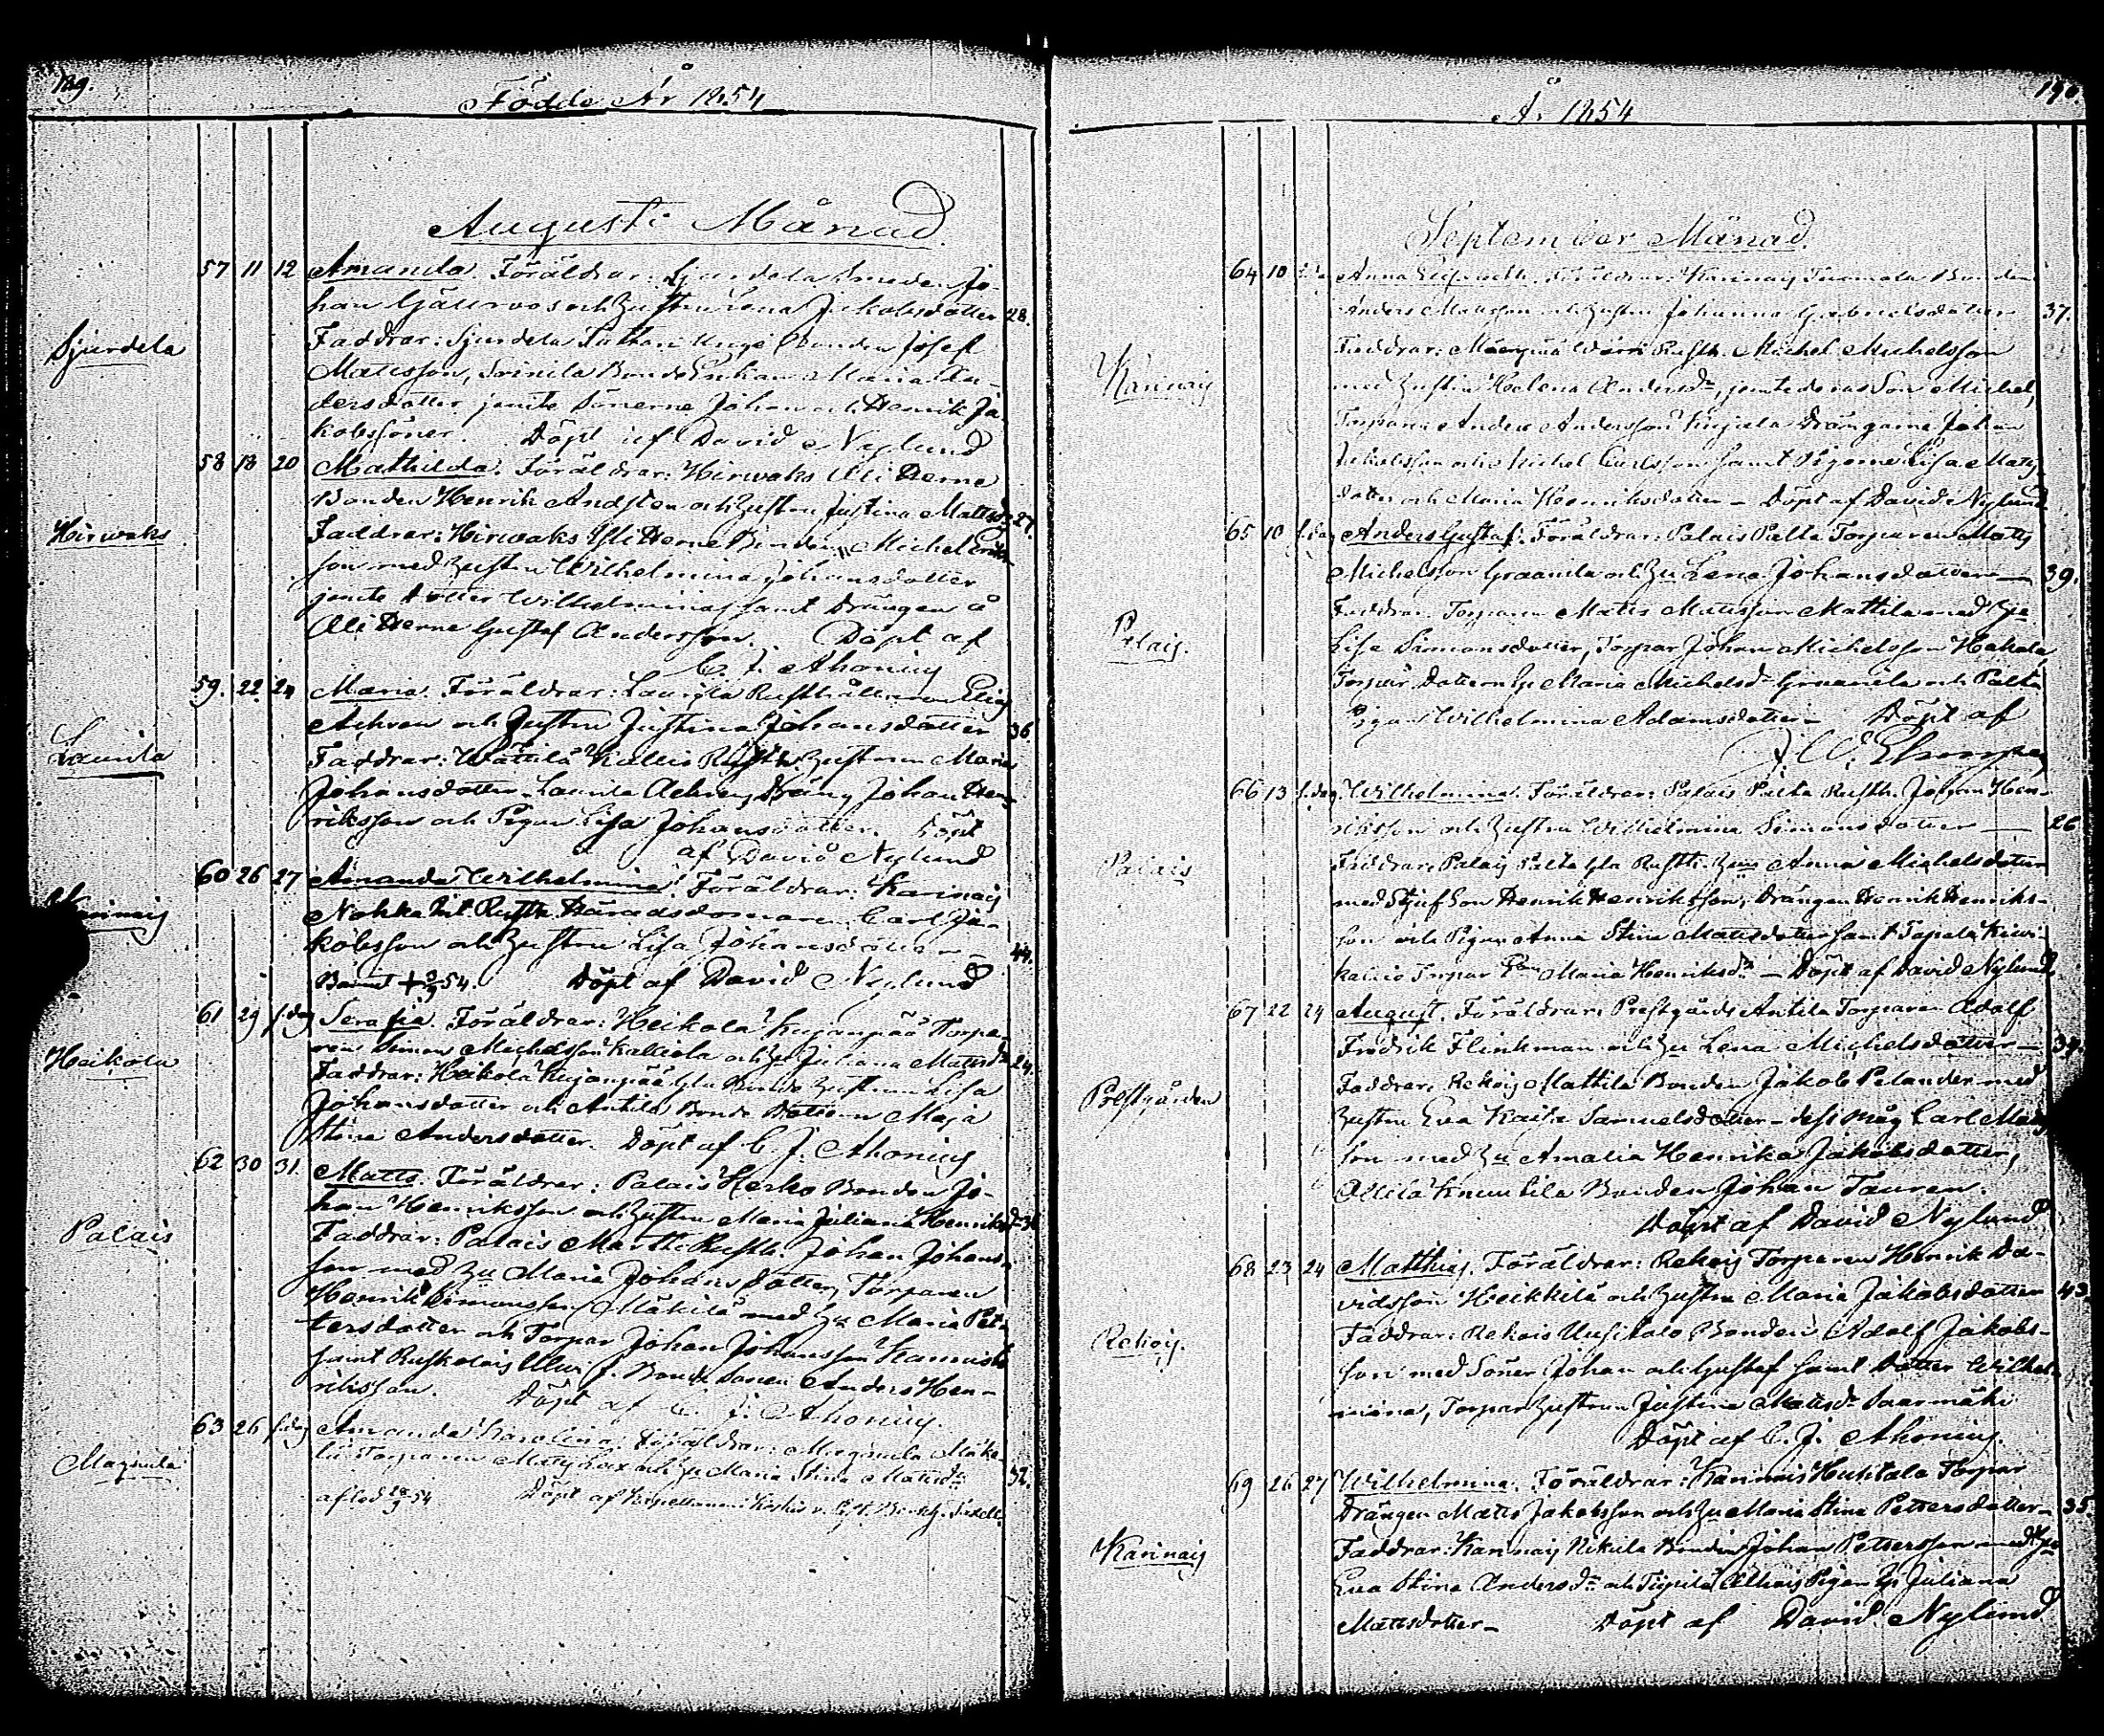 189.
Födde År 1854
Augusti Månad.
Sjurdela
57 11 12 Amanda. Föräldrar: Sjurdela Smeden Jo-
han och Hustru Lena Jakobsdotter 28.
Faddrar: Sjurdela Unge Bonden Josef
Mattsson, Bonde Enkan Maria An-
dersdotter jemte Sönerne Johan och Henrik Ja-
kobssöner. Döpt af David Nylund
Hirwaks
58 18 20 Mathilda. Föräldrar: Hirwaks Ali Herne
Bonden Henrik Andsten och Hustru Justina Mattsdr 27.
Faddrar: Hirwaks Yli Herne Bonden Michel
son med Hustru Wilhelmina Johansdotter
jemte dotter Wilhelmina samt Drängen å
Ali Herne Gustaf Andersson. Döpt af
C. J. Ahonius
Laurila
59. 22 24 Maria. Föräldrar: Laurila Rusthållaren Elias
och Hustru Justina Johansdotter 36.
Faddrar: Wättilä Kallis Rusth. Hustrun Maria
Johansdotter, Laurila Dräng Johan Hen-
riksson och Pigan Lisa Johansdotter. Döpt
af David Nylund
Karinais
60 26 27 Amanda Wilhelmina. Föräldrar: Karinais
Nohka Rusth. Häradsdomaren Carl Ja-
kobsson och Hustru Lisa Johansdotter 44.
Barnet + 54. Döpt af David Nylund
Heikola
61 29 s.dag Serafia. Föräldrar: Heikola Kujanpää Torpa-
ren Simon Michelsson Kalliola och Hu Juliana Mattsdr 24.
Faddrar: Heikola Kujanpää Gla Bonde Hustrun Lisa
Johansdotter och Antila Bonde Dottern Maja
Stina Andersdotter. Döpt af C. J. Ahonius
Palais
62 30 31. Matts. Föräldrar: Palais Herko Bonden Jo-
han Henriksson och Hustru Maria Juliana Henriksdr
Faddrar: Palais Martti Rusth. Johan Johans-
son med Hu Maria Johansdotter, Torparen
Henrik Simonsson Mäkilä med Hu Maria Pet-
tersdotter och Torpar Johan Johansson
samt Ruskolais Bonde Sonen Anders Hen-
riksson. Döpt af C. J. Ahonius.
Maqinla
63 26 s.dag Amanda Karolina. Föräldrar: Mäke-
lä Torparen Matts och Hu Maria Stina Mattsdr 32.
afled 54 Döpt af Kapellanen
190.
År 1854
September Månad.
Karinais
64 10 s.da Anna Föräldrar: Karinais Tuomola Bonden
Anders Mattsson och Hustru Johanna Gabrielsdotter 37.
Faddrar: Rusth. Michel Michelsson
med Hustru Helena Andersdr, jemte deras Son Michel,
Torparen Anders Andersson Kujala Drängarne Johan
Jakobsson och Michel Carlsson samt Pigorne Lisa Matts-
dotter och Maria Henriksdotter – Döpt af David Nylund
Palais.
65 10 s.dag Anders Gustaf. Föräldrar: Palais Palta Torparen Matts
Michelsson Graanila och Hu Lena Johansdotter – 39.
Faddrar. Torparen Matts Mattsson Mattila med Hu
Lisa Simonsdotter, Torpar Johan Michelsson Hakala,
Torpar Dottern Maria Michelsdr Graanila och Palta
Pigan Wilhelmina Adamsdotter – Döpt af
Palais
66 13 s.dag Wilhelmina. Föräldrar: Palais Palta Rusth. Johan Hen-
riksson och Hustru Wilhelmina Simonsdotter – 26
Faddrar: Palais Palta Gla Rusth. Anna Michelsdotter
med Stjufson Henrik Henriksson, Drängen Henrik Henriks-
son och Pigan Anna Stina Mattsdotter samt Tapala Kiwi-
kallio Torpar Maria Henriksdr – Döpt af David Nylund.
Prestgården
67 22 24 August. Föräldrar: Prestgårds Antila Torparen Adolf
Fredrik Flinkman och Hu Lena Michelsdotter – 34.
Faddrar: Rekois Mattila Bonden Jakob Pelander med
Hustru Eva Kaisa Samuelsdotter – dess måg Carl Matts-
son med Hu Amalia Henrika Jakobsdotter,
Allila Knuutila Bonden Johan Tauren.
Döpt af David Nylund
Rekois.
68 23 24 Matthias. Föräldrar: Rekois Torparen Henrik Da-
vidsson Heikkilä och Hustru Maria Jakobsdotter 43.
Faddrar: Rekois Uusitalo Bonden Adolf Jakobs-
son med Söner Johan och Gustaf samt Dotter Wilhel-
mina, Torpar Hustrun Justina Mattsdr Saarmäki
Döpt af C. J. Ahonius.
Karinais
69 26 27 Wilhelmina. Föräldrar: Karinais Huhtala Torpar
Drängen Matts Jakobsson och Hu Maria Stina Pettersdotter – 35.
Faddrar: Karinais Rikula Bonden Johan Pettersson med Hu
Eva Stina Andersdr och Pigan Juliana
Mattsdotter – Döpt af David Nylund